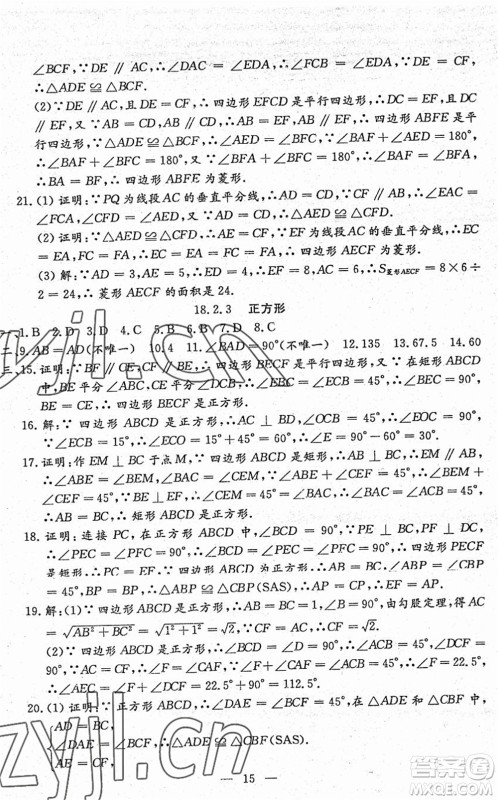 ∠BCF,∵DE∥AC,∴∠DAC=∠EDA,∴∠FCB=∠EDA,∵DE=CF,
∴△ADE≌△CBF.
(2)∵DE∥AC,且DE=CF,∴四边形EFCD是平行四边形,∴DC=EF,且DC
∥EF,又∵AB=CD,AB∥CD,∴AB=EF,AB∥EF,∴四边形ABFE是平
行四边形,∵△ADE≌△CBF,∴∠AED=∠BFC,∵∠BAF+∠AED=180°,
∴∠BAF+∠BFC=180°,又∵∠BFA+∠BFC=180°,∴∠BAF=∠BFA,
∴BA=BF,∴四边形ABFE为菱形.
21.(1)证明:∵PQ为线段AC的垂直平分线,∴AD=CD,∵CF∥AB,∴∠EAC=
∠FCA,∠CFD=∠AED,∴△AED≌△CFD.
(2)证明:∵△AED≌△CFD,∴AE=CF,∵EF为线段AC的垂直平分线,∴EC
=EA,FC=FA,∴EC=EA=FC=FA,∴四边形AECF为菱形.
(3)解:∵AD=3,AE=5,∴DE=4,∴EF=8,AC=6,∴S菱形AECF=8×6÷
2=24,∴菱形AECF的面积是24.
18.2.3 正方形
1.B 2.D 3.D 4.D 5.C 6.B 7.D 8.C
二、9.AB=AD(不唯一) 10.4 11.∠BAD=90°(不唯一) 12.135 13.67.5 14.60
三、15.证明:∵BF∥CE,CF∥BE,∴四边形BECF是平行四边形,又∵在矩形ABCD
中,BE平分∠ABC,CE平分∠DCB,∴∠EBC=∠ECB=45°,∴∠BEC=90°,
BE=CE,∴四边形BECF是正方形.
16.解:∵四边形ABCD是正方形,∴∠OBC=∠OCB=45°,∴∠EOC=90°,
∵∠ECB=15°,∴∠ECO=30°,∵OE=2,∴CE=4.
17.证明:作EM⊥BC于点M,∵四边形ABCD是矩形,∴AB⊥BC,∴EM∥AB,
∴∠ABE=∠BEM,∠BAC=∠CEM,∵∠CEF=45°+∠BAC,∴∠BEM+
∠CEF=45°,∴∠BEM=∠ABE=45°,∴∠BAC=∠CEM=45°,∠ACB=45°,
∴AB=BC,∴矩形ABCD是正方形.
18.证明:连接PC,在正方形ABCD中,∠ABP=∠CBP=45°,AB=CB,∵PE⊥
BC,PF⊥CD,∴∠PEC=90°,∠PFC=90°,又∵∠BCD=90°,∴四边形PECF
是矩形,∴∠BCD=∠PEC=∠PFC=90°,∴PC=EF,∵∠ABP=∠CBP
=45°,BP=BP,∴△ABP≌△CBP(SAS),∴AP=CP,∴EF=AP.
19.解:(1)∵四边形ABCD是正方形,∴AB=BC=1,∠B=90°,由勾股定理,得AC
=√(AB²+BC²)=√(1²+1²)=√2,∵CF=AC,∴CF=√2.
(2)∵CF=AC,∴∠F=∠CAF,∵∠F+∠CAF=∠ACB=45°,∴∠F=22.5°,
∴∠AEC=∠F+∠DCF=22.5°+90°=112.5°.
20.(1)证明:∵四边形ABCD是正方形,∴∠DAE=∠BCF=45°,在△ADE和△CBF中,
AD=BC,
∠DAE=∠BCF,∴△ADE≌△CBF(SAS).
AE=CF,
— 15 —
zyjl.cn
zyjl.cn
答案圈
MXQE.COM